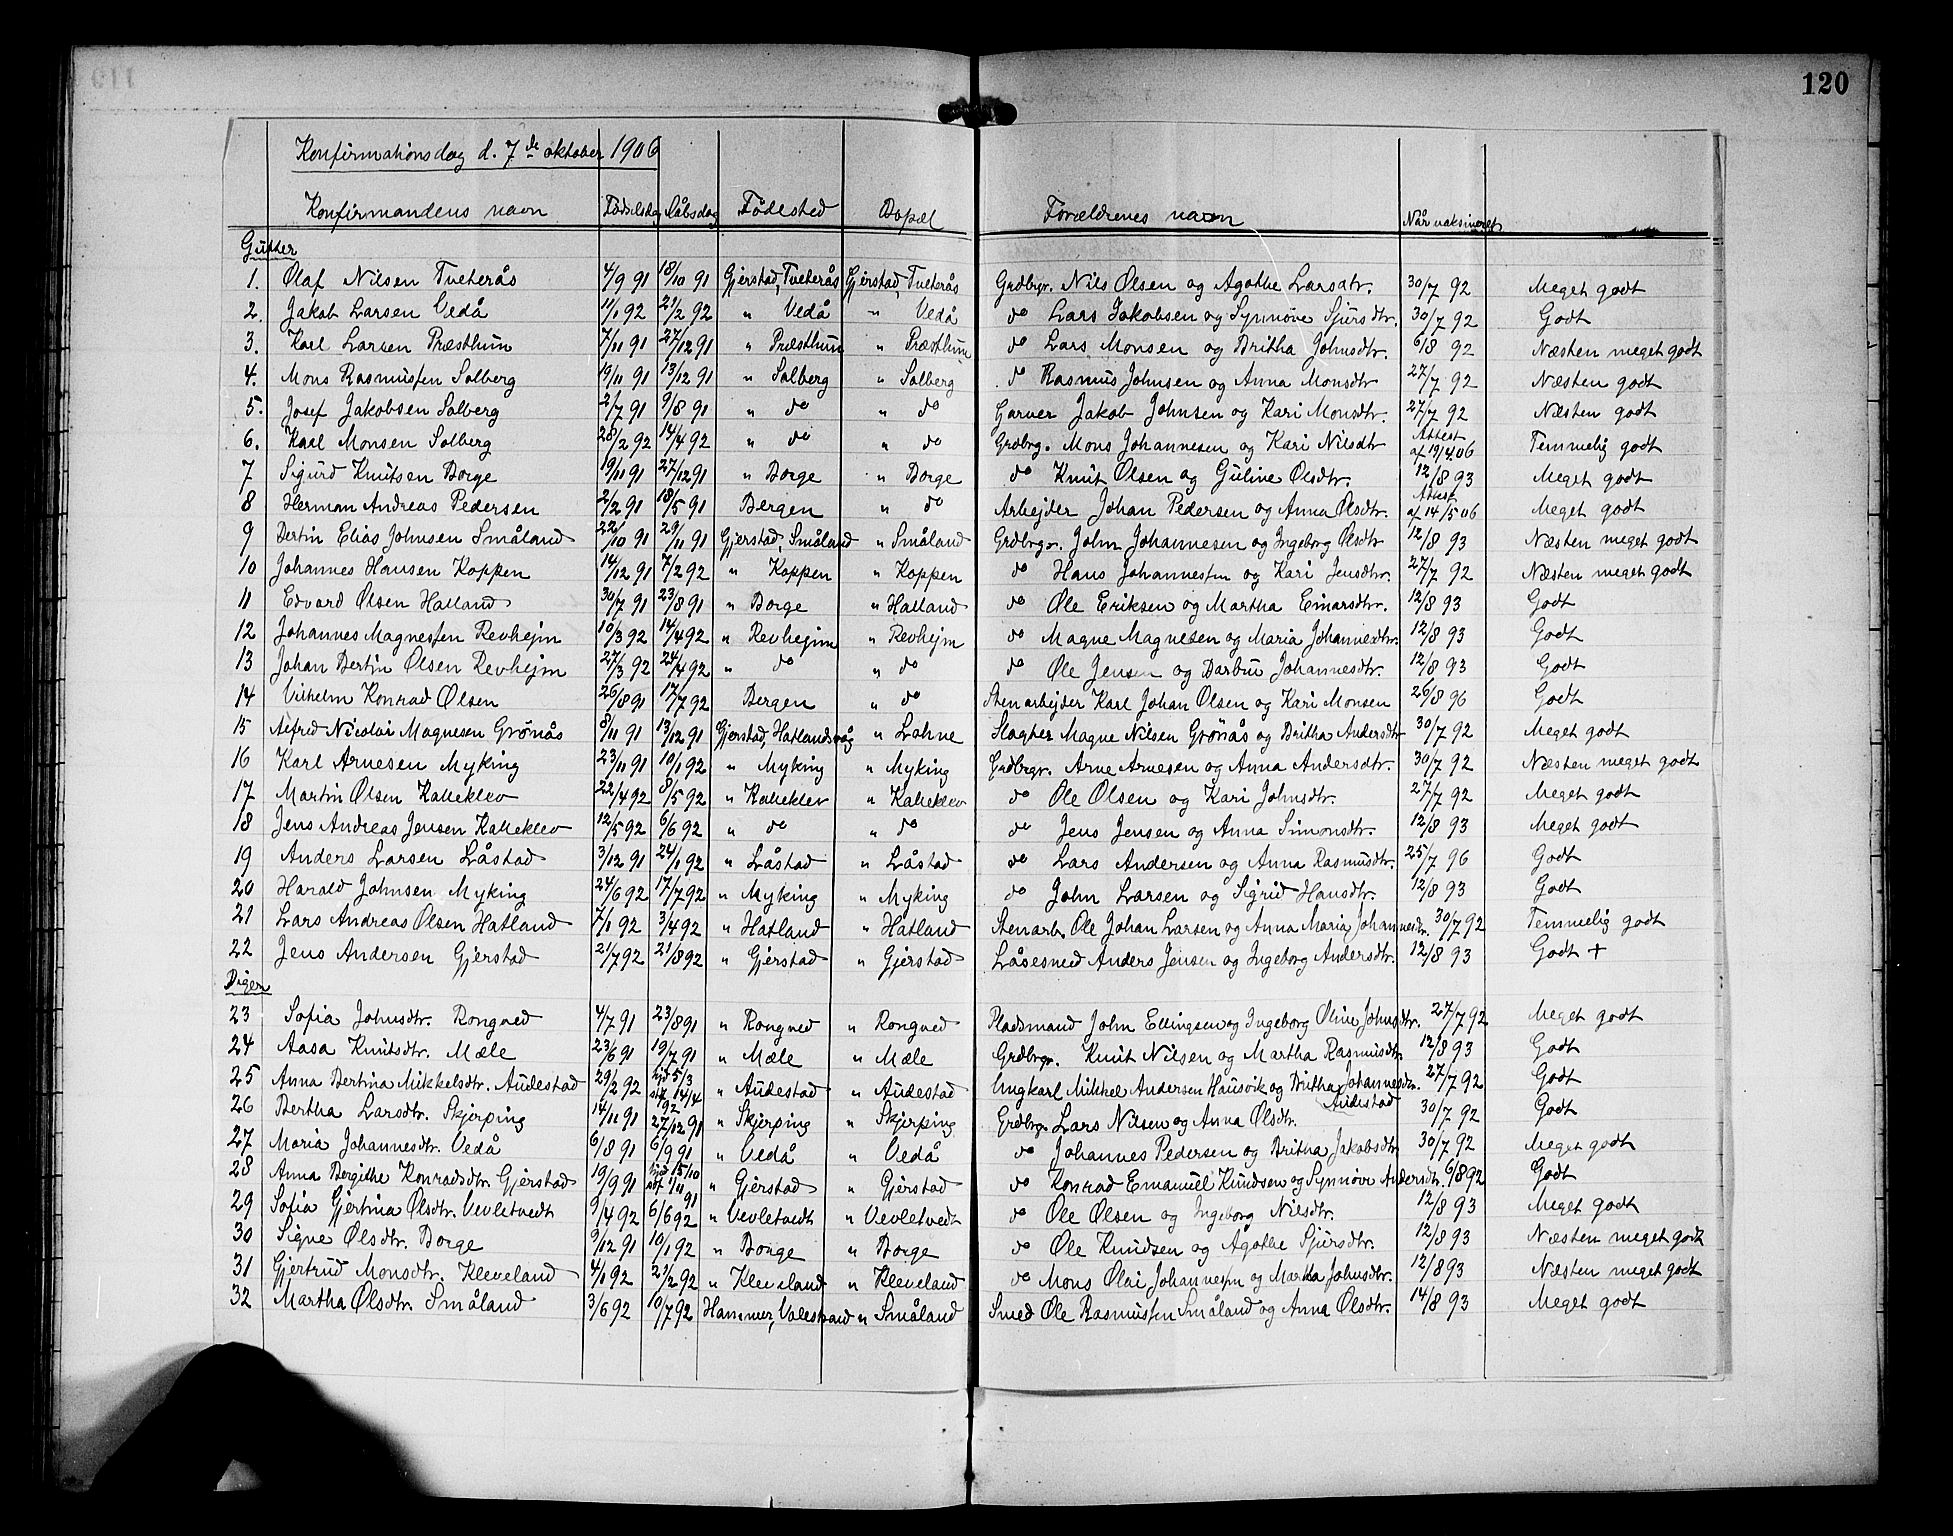 120
Konfirmationsdag d. 7de oktober 1906
Konfirmandens navn Fødselsdag Dåbsdag Fødested Bopæl Forældrenes navn Når vaksineret
Gutter
1. Olaf Nilsen Tveterås 4/9 91 18/10 91 Gjerstad, Tveterås Gjerstad, Tveterås Grdbrgr. Nils Olsen og Agathe Larsdtr. 30/7 92 Meget godt
2. Jakob Larsen Vedå 11/1 92 21/2 92 " Vedå " Vedå do Lars Jakobsen og Synnøve Sjursdtr. 30/7 92 Godt
3. Karl Larsen Præsthun 7/11 91 27/12 91 " Præsthun " Præsthun do Lars Monsen og Britha Johnsdtr. 6/8 92 Næsten meget godt
4. Mons Rasmussen Solberg 19/11 91 13/12 91 " Solberg " Solberg do Rasmus Johnsen og Anna Monsdtr 27/7 92 Næsten godt
5. Josef Jakobsen Solberg 2/7 91 9/8 91 " do " do Garver Jakob Johnsen og Kari Monsdtr. 27/7 92 Næsten godt
6. Karl Monsen Solberg 28/2 92 14/4 92 " do " do Grdbrg. Mons Johannesen og Kari Nilsdtr Attest af 19/4 06 Temmelig godt
7 Sigurd Knutsen Borge 19/11 91 27/12 91 " Borge " Borge do Knut Olsen og Guline Olsdtr. 12/8 93 Meget godt
8 Herman Andreas Pedersen 2/2 91 18/5 91 Bergen " do Arbejder Johan Pedersen og Anna Olsdtr. Attest af 14/5 06 Meget godt
9 Bertin Elias Johnsen Småland 22/10 91 29/11 91 Gjerstad, Småland " Småland Grdbrgr. John Johannesen og Ingeborg Olsdtr 12/8 93 Næsten meget godt
10 Johannes Hansen Koppen 14/12 91 7/2 92 " Koppen " Koppen do Hans Johannessen og Kari Jensdtr. 27/7 92 Næsten meget godt
11 Edvard Olsen Hatland 30/7 91 23/8 91 " Borge " Hatland do Ole Eriksen og Martha Einarsdtr. 12/8 93 Godt
12 Johannes Magnessen Revhejm 10/3 92 14/4 92 " Revhejm " Revhejm do Magne Magnesen og Maria Johannesdtr. 12/8 93 Godt
13 Johan Bertin Olsen Revhejm 27/3 92 24/4 92 " do " do do Ole Jensen og Barbru Johannesdtr. 12/8 93 Godt
14 Vilhelm Konrad Olsen 26/8 91 17/7 92 Bergen " do Stenarbejder Karl Johan Olsen og Kari Monsen 26/8 96 Godt
15 Alfred Nicolai Magnesen Grønås 8/11 91 13/12 91 Gjerstad, Hatlandsvåg " Lohne Slagter Magne Nilsen Grønås og Britha Andersdtr 30/7 92 Meget godt
16 Karl Arnesen Myking 23/11 91 10/1 92 " Myking " Myking Grdbrgr. Arne Arnesen og Anna Andersdtr. 30/7 92 Næsten meget godt
17 Martin Olsen Kalleklev 22/4 92 8/5 92 " Kalleklev " Kalleklev do Ole Olsen og Kari Johnsdtr. 27/7 92 Meget godt
18 Jens Andreas Jensen Kalleklev 12/5 92 6/6 92 " do " do do Jens Jensen og Anna Simonsdtr. 12/8 93 Meget godt
19 Anders Larsen Låstad 3/12 91 24/1 92 " Låstad " Låstad do Lars Andersen og Anna Rasmusdtr. 25/7 96 Godt
20 Harald Johnsen Myking 24/6 92 17/7 92 " Myking " Myking do John Larsen og Sigrid Hansdtr. 12/8 93 Godt
21 Lars Andreas Olsen Hatland 7/1 92 3/4 92 " Hatland " Hatland Stenarb. Ole Johan Larsen og Anna Maria Johannesdtr. 30/7 92 Temmelig godt
22 Jens Andersen Gjerstad 21/7 92 21/8 92 " Gjerstad " Gjerstad Låsesmed Anders Jensen og Ingeborg Andersdtr. 12/8 93 Godt +
Piger
23 Sofia Johnsdtr. Rongved 4/7 91 23/8 91 " Rongved " Rongved Pladsmand John Ellingsen og Ingeborg Oline Johnsdtr. 27/7 92 Meget godt
24 Aasa Knutsdtr. Mæle 23/6 91 19/7 91 " Mæle " Mæle Grdbrgr. Knut Nilsen og Martha Rasmusdtr 12/8 93 Godt
25 Anna Bertina Mikkelsdtr. Audestad 29/2 92 hjd 5/3 stf 14/4 92 " Audestad " Audestad Ungkarl Mikkel Andersen Hausvik og Britha Johannesdtr. Audestad 27/7 92 Godt
26 Bertha Larsdtr. Skjerping 14/11 91 27/12 91 " Skjerping " Skjerping Grdbrgr Lars Nilsen og Anna Olsdtr. 30/7 92 Godt
27 Maria Johannesdtr. Vedå 6/8 91 6/9 91 " Vedå " Vedå do Johannes Pedersen og Britha Jakobsdtr 30/7 92 Meget godt
28 Anna Bergithe Konradsdtr. Gjerstad 19/9 91 hjd 15/10 stf 1/11 91 " Gjerstad " Gjerstad do Konrad Emanuel Knudsen og Synnøve Andersdtr. 6/8 92 Godt
29 Sofia Gjertina Olsdtr. Vevletvedt 9/4 92 6/6 92 " Vevletvedt " Vevletvedt do Ole Olsen og Ingeborg Nilsdtr. 12/8 93 Meget godt
30 Signe Olsdtr. Borge 9/12 91 10/1 92 " Borge " Borge do Ole Knudsen og Agathe Sjursdtr. 12/8 93 Næsten meget godt
31 Gjertrud Monsdtr. Kleveland 4/1 92 21/2 92 " Kleveland " Kleveland do Mons Olai Johannessen og Martha Johnsdtr. 12/8 93 Næsten meget godt
32 Martha Olsdtr. Småland 3/6 92 10/7 92 Hammer, Valestrand " Småland Smed Ole Rasmussen Småland og Anna Olsdtr. 14/8 93 Meget godt